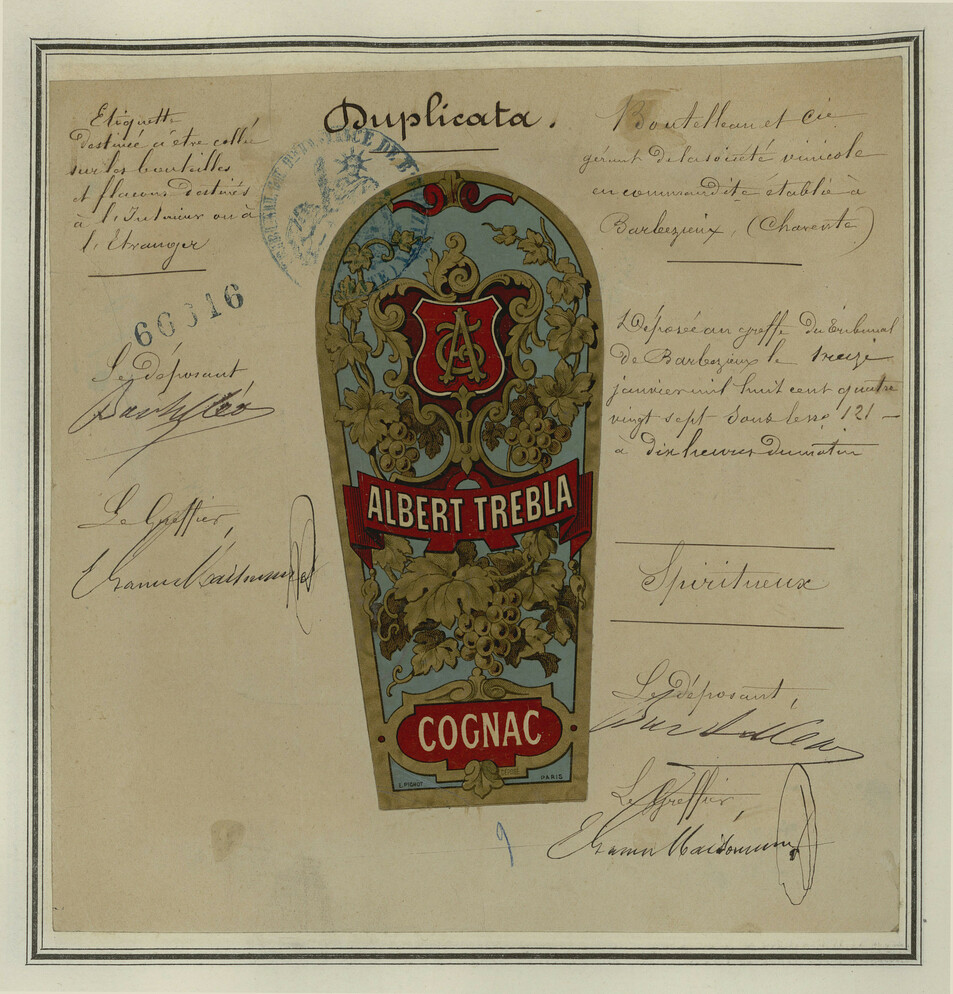 Duplicata.
Etiquette
destinée à être collée
sur les bouteilles
et flacons destinés
à l'Intérieur ou à
l'Etranger
66616
Le déposant
Le Greffier,
ALBERT TREBLA
COGNAC
E. PICHOT
DÉPOSÉ
PARIS
Boutelleau et Cie
gérant de la société vinicole
en commandite établie à
Barbezieux, (Charente)
Déposée au greffe du Tribunal
de Barbezieux le treize
janvier mil huit cent quatre
vingt sept sous le no 121 —
à dix heures du matin
Spiritueux
Le déposant,
Le Greffier,